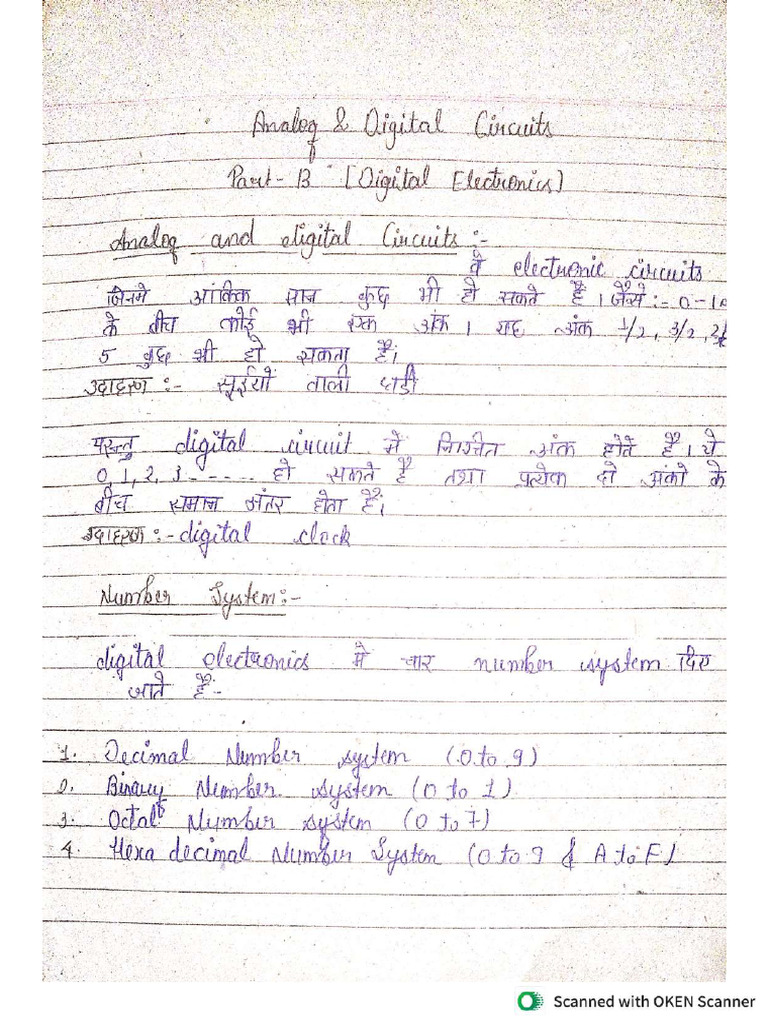 Analog & Digital Circuits
Part-B [Digital Electronics]
Analog and digital Circuits :-
वे electronic circuits
जिनमे आंकिक मान कुछ भी हो सकते है। जैसे:- 0-10
के बीच कोई भी एक अंक। यह अंक 1/2, 3/2,
5 कुछ भी हो सकता है।
उदाहरण :- सूईयों वाली घडी
परन्तु digital circuit में निश्चित अंक होते है। ये
0,1,2,3------- हो सकते है तथा प्रत्येक दो अंको के
बीच समान अंतर होता है।
उदाहरण:- digital clock
Number System:-
digital electronics मे चार number system दिए
जाते है:-
1. Decimal Number system (0 to 9)
2. Binary Number system (0 to 1)
3. Octal Number system (0 to 7)
4. Hexa decimal Number System (0 to 9 & A to F)
Scanned with OKEN Scanner